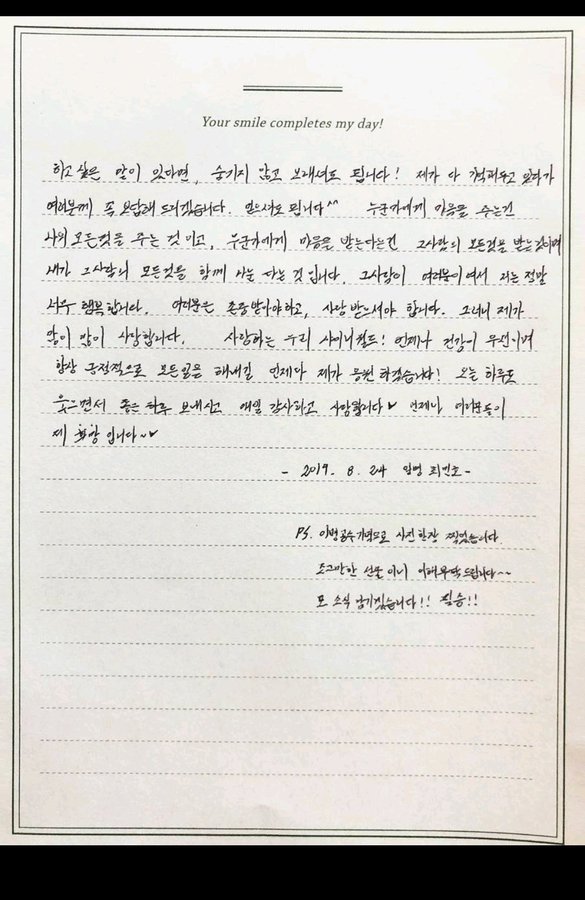 Your smile completes my day!
하고 싶은 말이 있다면, 숨기지 않고 보내셔도 됩니다! 제가 다 기억해두고 있다가
여러분께 꼭 보답해 드리겠습니다. 믿으셔도 됩니다^^ 누군가에게 마음을 주는건
나의 모든것을 주는 것이고, 누군가에게 마음을 받는다는건 그사람의 모든것을 받는것이며
내가 그사람의 모든것을 함께 나눈 다는 것 입니다. 그사람이 여러분이여서 저는 정말
너무 행복합니다. 여러분은 존중받아야하고, 사랑 받으셔야 합니다. 그러니 제가
많이 많이 사랑합니다. 사랑하는 우리 샤이니월드! 언제나 건강이 우선이며
항상 긍정적으로 모든일을 해내길 언제나 제가 응원 하겠습니다! 오늘 하루도
웃으면서 좋은 하루 보내시고 매일 감사하고 사랑합니다♥ 언제나 여러분들이
제 희망 입니다~♥
- 2019. 8. 24 일병 최민호-
PS. 이병 공수기념으로 사진한장 찍었습니다
조그만한 선물 이니 이해부탁드립니다~~
또 소식 남기겠습니다!! 필승!!